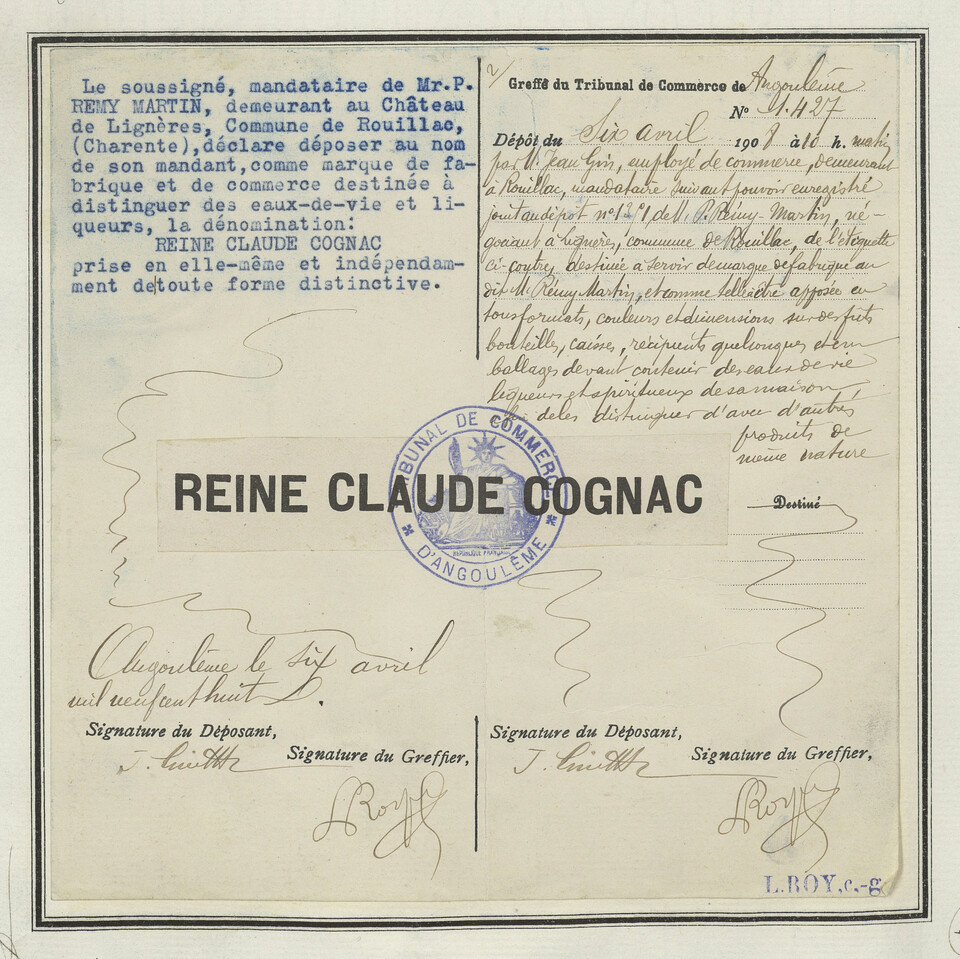 Le soussigné, mandataire de Mr.P.
REMY MARTIN, demeurant au Château
de Lignères, Commune de Rouillac,
(Charente),déclare déposer au nom
de son mandant,comme marque de fa-
brique et de commerce destinée à
distinguer des eaux-de-vie et li-
queurs, la dénomination:
REINE CLAUDE COGNAC
prise en elle-même et indépendam-
ment detoute forme distinctive.
Greffe du Tribunal de Commerce de Angoulême
N° 1.427
Dépôt du Six avril 1908 à 10 h. matin
par M. Jean Gin, employé de commerce, demeurant
à Rouillac, mandataire suivant pouvoir enregistré
joint au dépôt n° 1291, de M. P. Rémy-Martin, né-
gociant à Lignères, commune de Rouillac, de l'étiquette
ci-contre, destinée à servir de marque de fabrique au
dit M. Rémy Martin, et comme telle être apposée en
tous formats, couleurs et dimensions sur des fûts
bouteilles, caisses, récipients quelconques et em
ballages devant contenir des eaux de vie
liqueurs et spiritueux de sa maison,
de les distinguer d'avec d'autres
produits de
même nature
REINE CLAUDE COGNAC
TRIBUNAL DE COMMERCE
D'ANGOULÊME
REPUBLIQUE FRANÇAISE
Destiné
Angoulême le six avril
mil neuf cent huit
Signature du Déposant,
Signature du Greffier,
Signature du Déposant,
Signature du Greffier,
L.ROY, c.-g